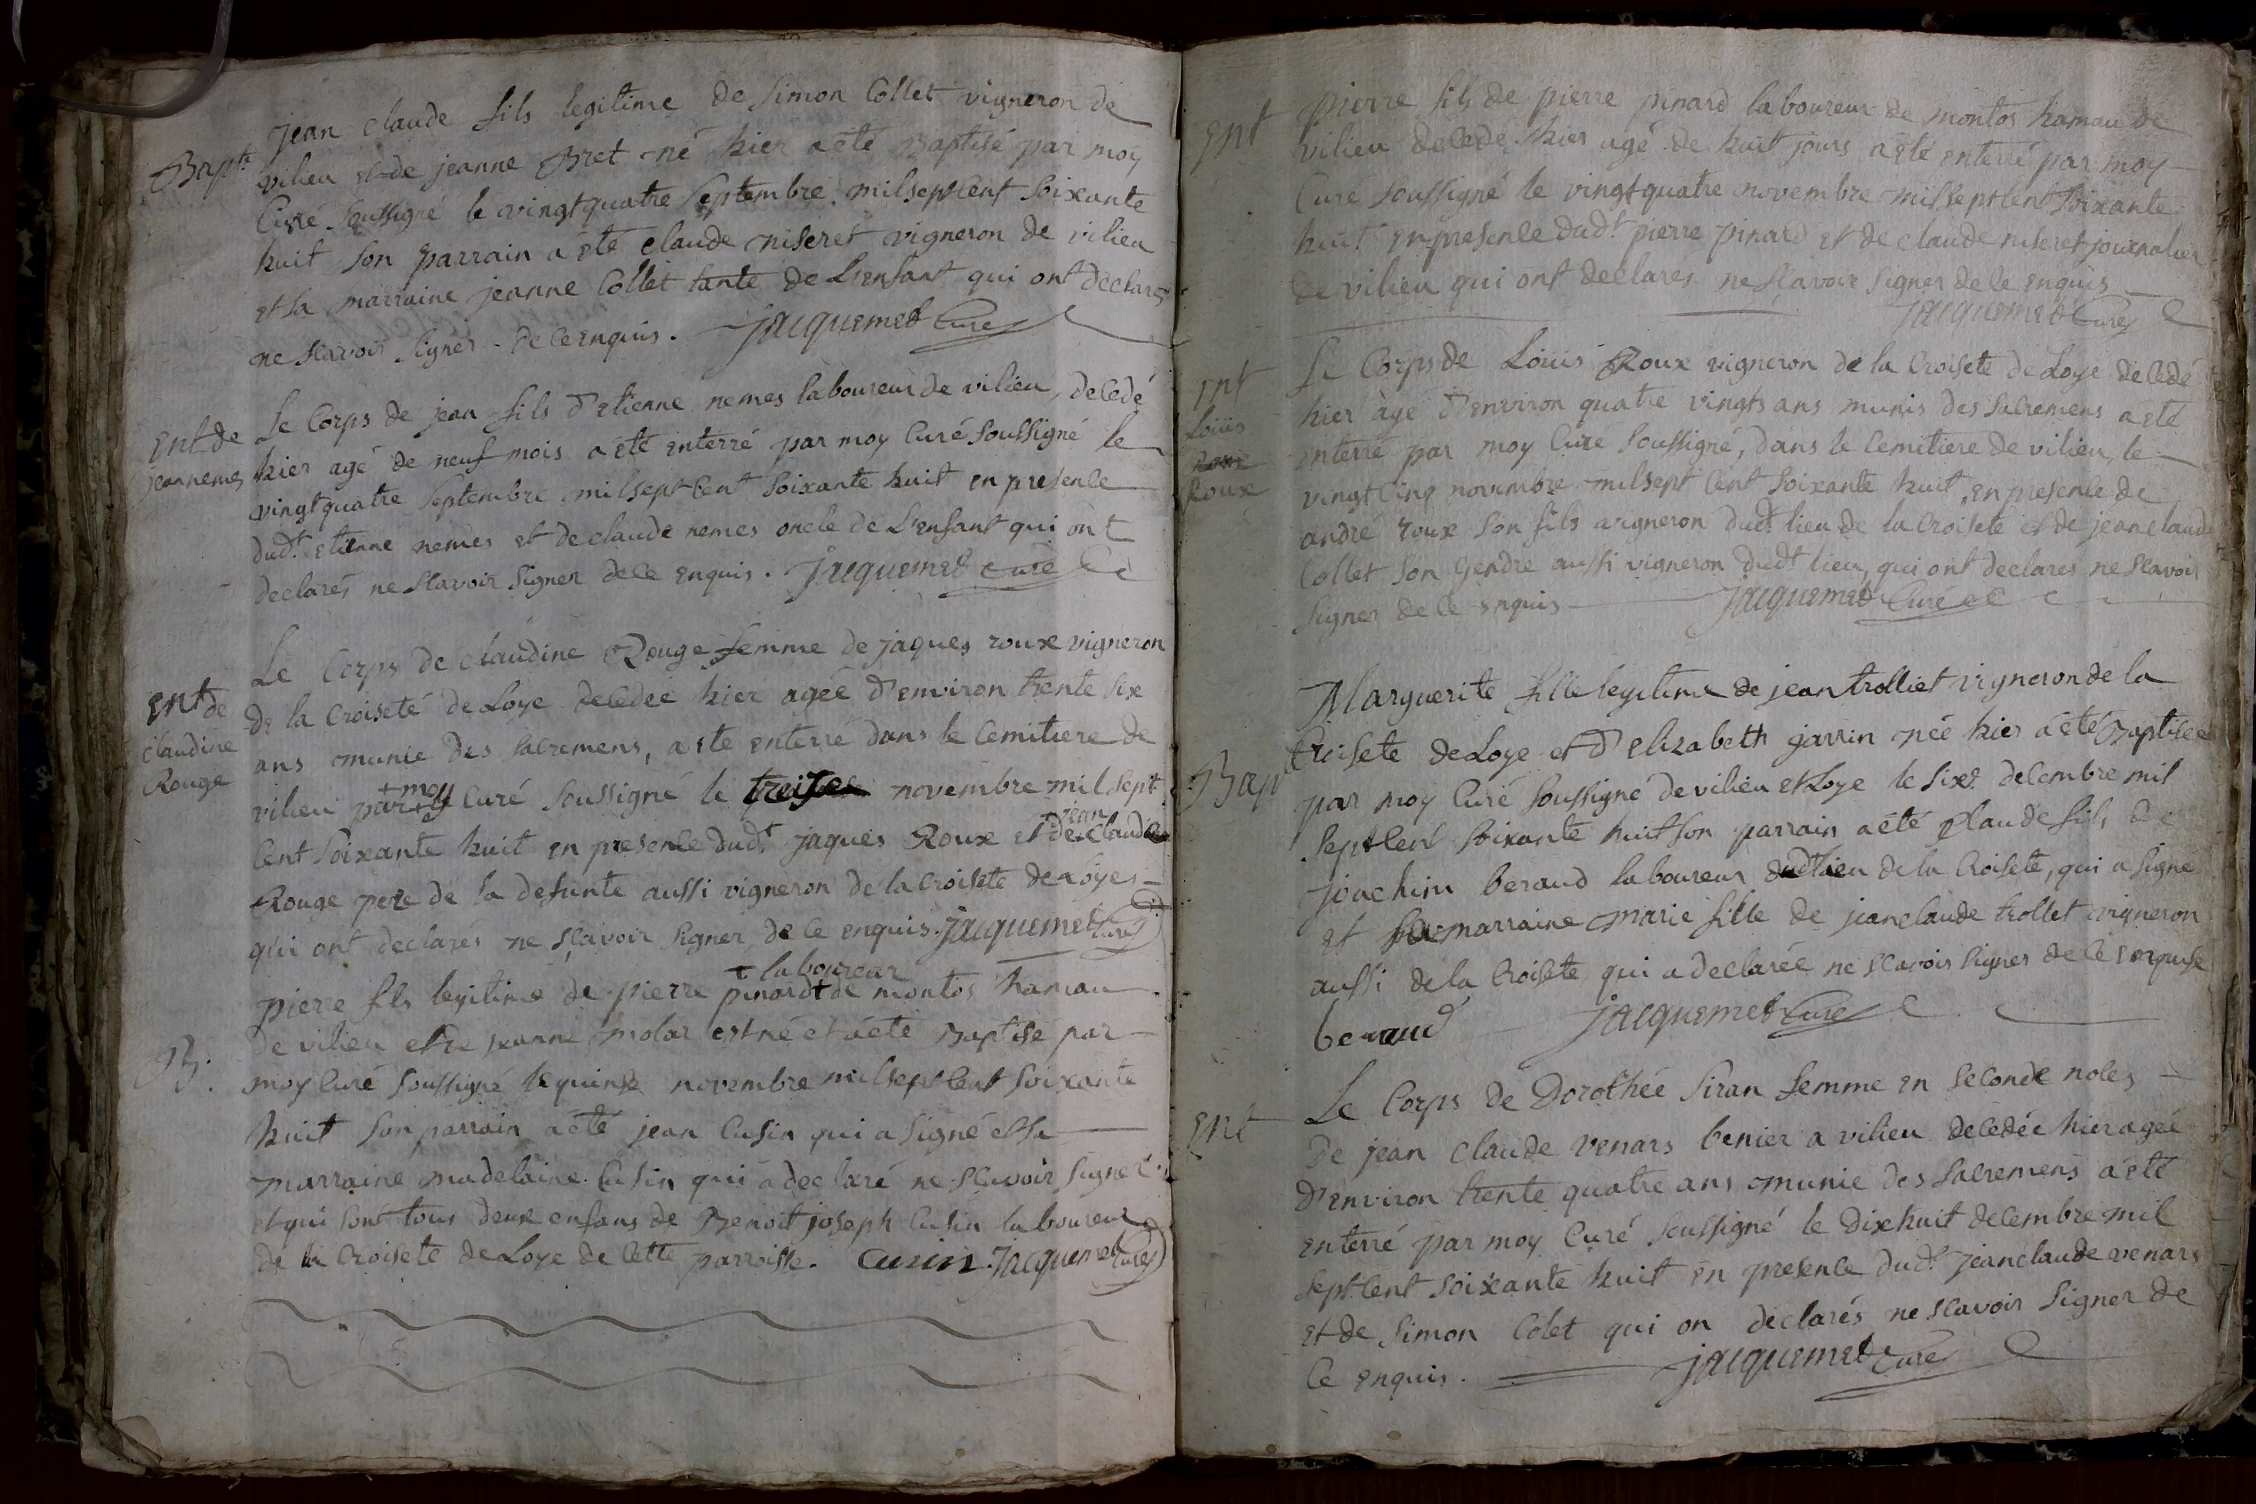 Bapt.
jean claude fils legitime de Simon Collet vigneron de
vilieu et de jeanne Bret né hier a été Baptisé par moy
Curé soussigné le vingt quatre Septembre mil sept Cent soixante
huit son parrain a été claude niseret vigneron de vilieu
et sa marraine jeanne Collet tante de L'enfant qui ont declarés
ne sçavoir signer de ce enquis. jacquemet Curé
Ent de
jean nemes
Le Corps de jean fils d'Etienne nemes laboureur de vilieu, decedé
hier agé de neuf mois a été enterré par moy Curé soussigné le
vingt quatre Septembre mil sept Cent soixante huit en presence
dudt. etienne nemes et de claude nemes oncle de L'enfant qui ont
declarés ne sçavoir signer de ce enquis. jacquemet curé
Ent de
claudine
Rouge
Le Corps de claudine Rouge femme de jaques roux vigneron
de la Croiseté de Loye decedée hier agée d'environ trente six
ans munie des sacremens, a été enterré dans le Cemitiere de
vilieu par + moy Curé soussigné le treise novembre mil sept
Cent soixante huit en presence dudt. jaques Roux et de jean claude
Rouge pere de la defunte aussi vigneron de la Croisete de Loyes
qui ont declarés ne sçavoir signer de ce enquis. jacquemet Curé
B.
pierre fils legitime de pierre pinard + laboureur de montos hamau
de vilieu et de jeanne molar est né et a été Baptisé par
moy Curé soussigné le quinse novembre mil sept Cent soixante
huit son parrain a été jean Cusin qui a signé et sa
marraine madelaine Cusin qui a declaré ne sçavoir signer
et qui sont tous deux enfans de Benoit joseph Cusin laboureur
de la Croisete de Loye de cette parroisse. Cusin. jacquemet Curé
Ent
pierre fils de pierre pinard laboureur de montos hamau de
vilieu decedé hier agé de huit jours a été enterré par moy
Curé soussigné le vingt quatre novembre mil sept Cent soixante
huit en presence dudt. pierre pinard et de claude niseret journalier
de vilieu qui ont declarés ne sçavoir signer de ce enquis
jacquemet Curé
Ent
Loüis
roux
Roux
Le Corps de Loüis Roux vigneron de la Croisete de Loye decedé
hier àgé d'environ quatre vingts ans munis des sacremens a été
enterré par moy Curé soussigné, dans le Cemitiere de vilieu, le
vingt cinq novembre mil sept Cent soixante huit, en presence de
andré roux son fils vigneron dudt. lieu de la Croiseté et de jean claude
Collet son Gendre aussi vigneron dudt lieu, qui ont declarés ne sçavoir
signer de ce enquis jacquemet Curé
Bap
Marguerite fille legitime de jean trolliet vigneron de la
Croisete de Loye et d'Elizabeth garrin née hier a été Baptisée
par moy Curé soussigné de vilieu et Loye le sixe. decembre mil
sept Cent soixante huit son parrain a été Claude fils de
joachim beraud laboureur dudt lieu de la Croiseté, qui a signé
et sa marraine marie fille de jean claude trollet vigneron
aussi de la Croisete qui a declarée ne sçavoir signer de ce enquise
beraud jacquemet Curé
Ent
Le Corps de Dorothée siran femme en seconde noles
de jean claude venars benier a vilieu decedée hier agée
d'environ trente quatre ans munie des sacremens a été
enterré par moy Curé soussigné le dix huit decembre mil
sept Cent soixante huit en presence dudt. jean claude venars
et de Simon Colet qui on declarés ne sçavoir signer de
Ce enquis. jacquemet Curé